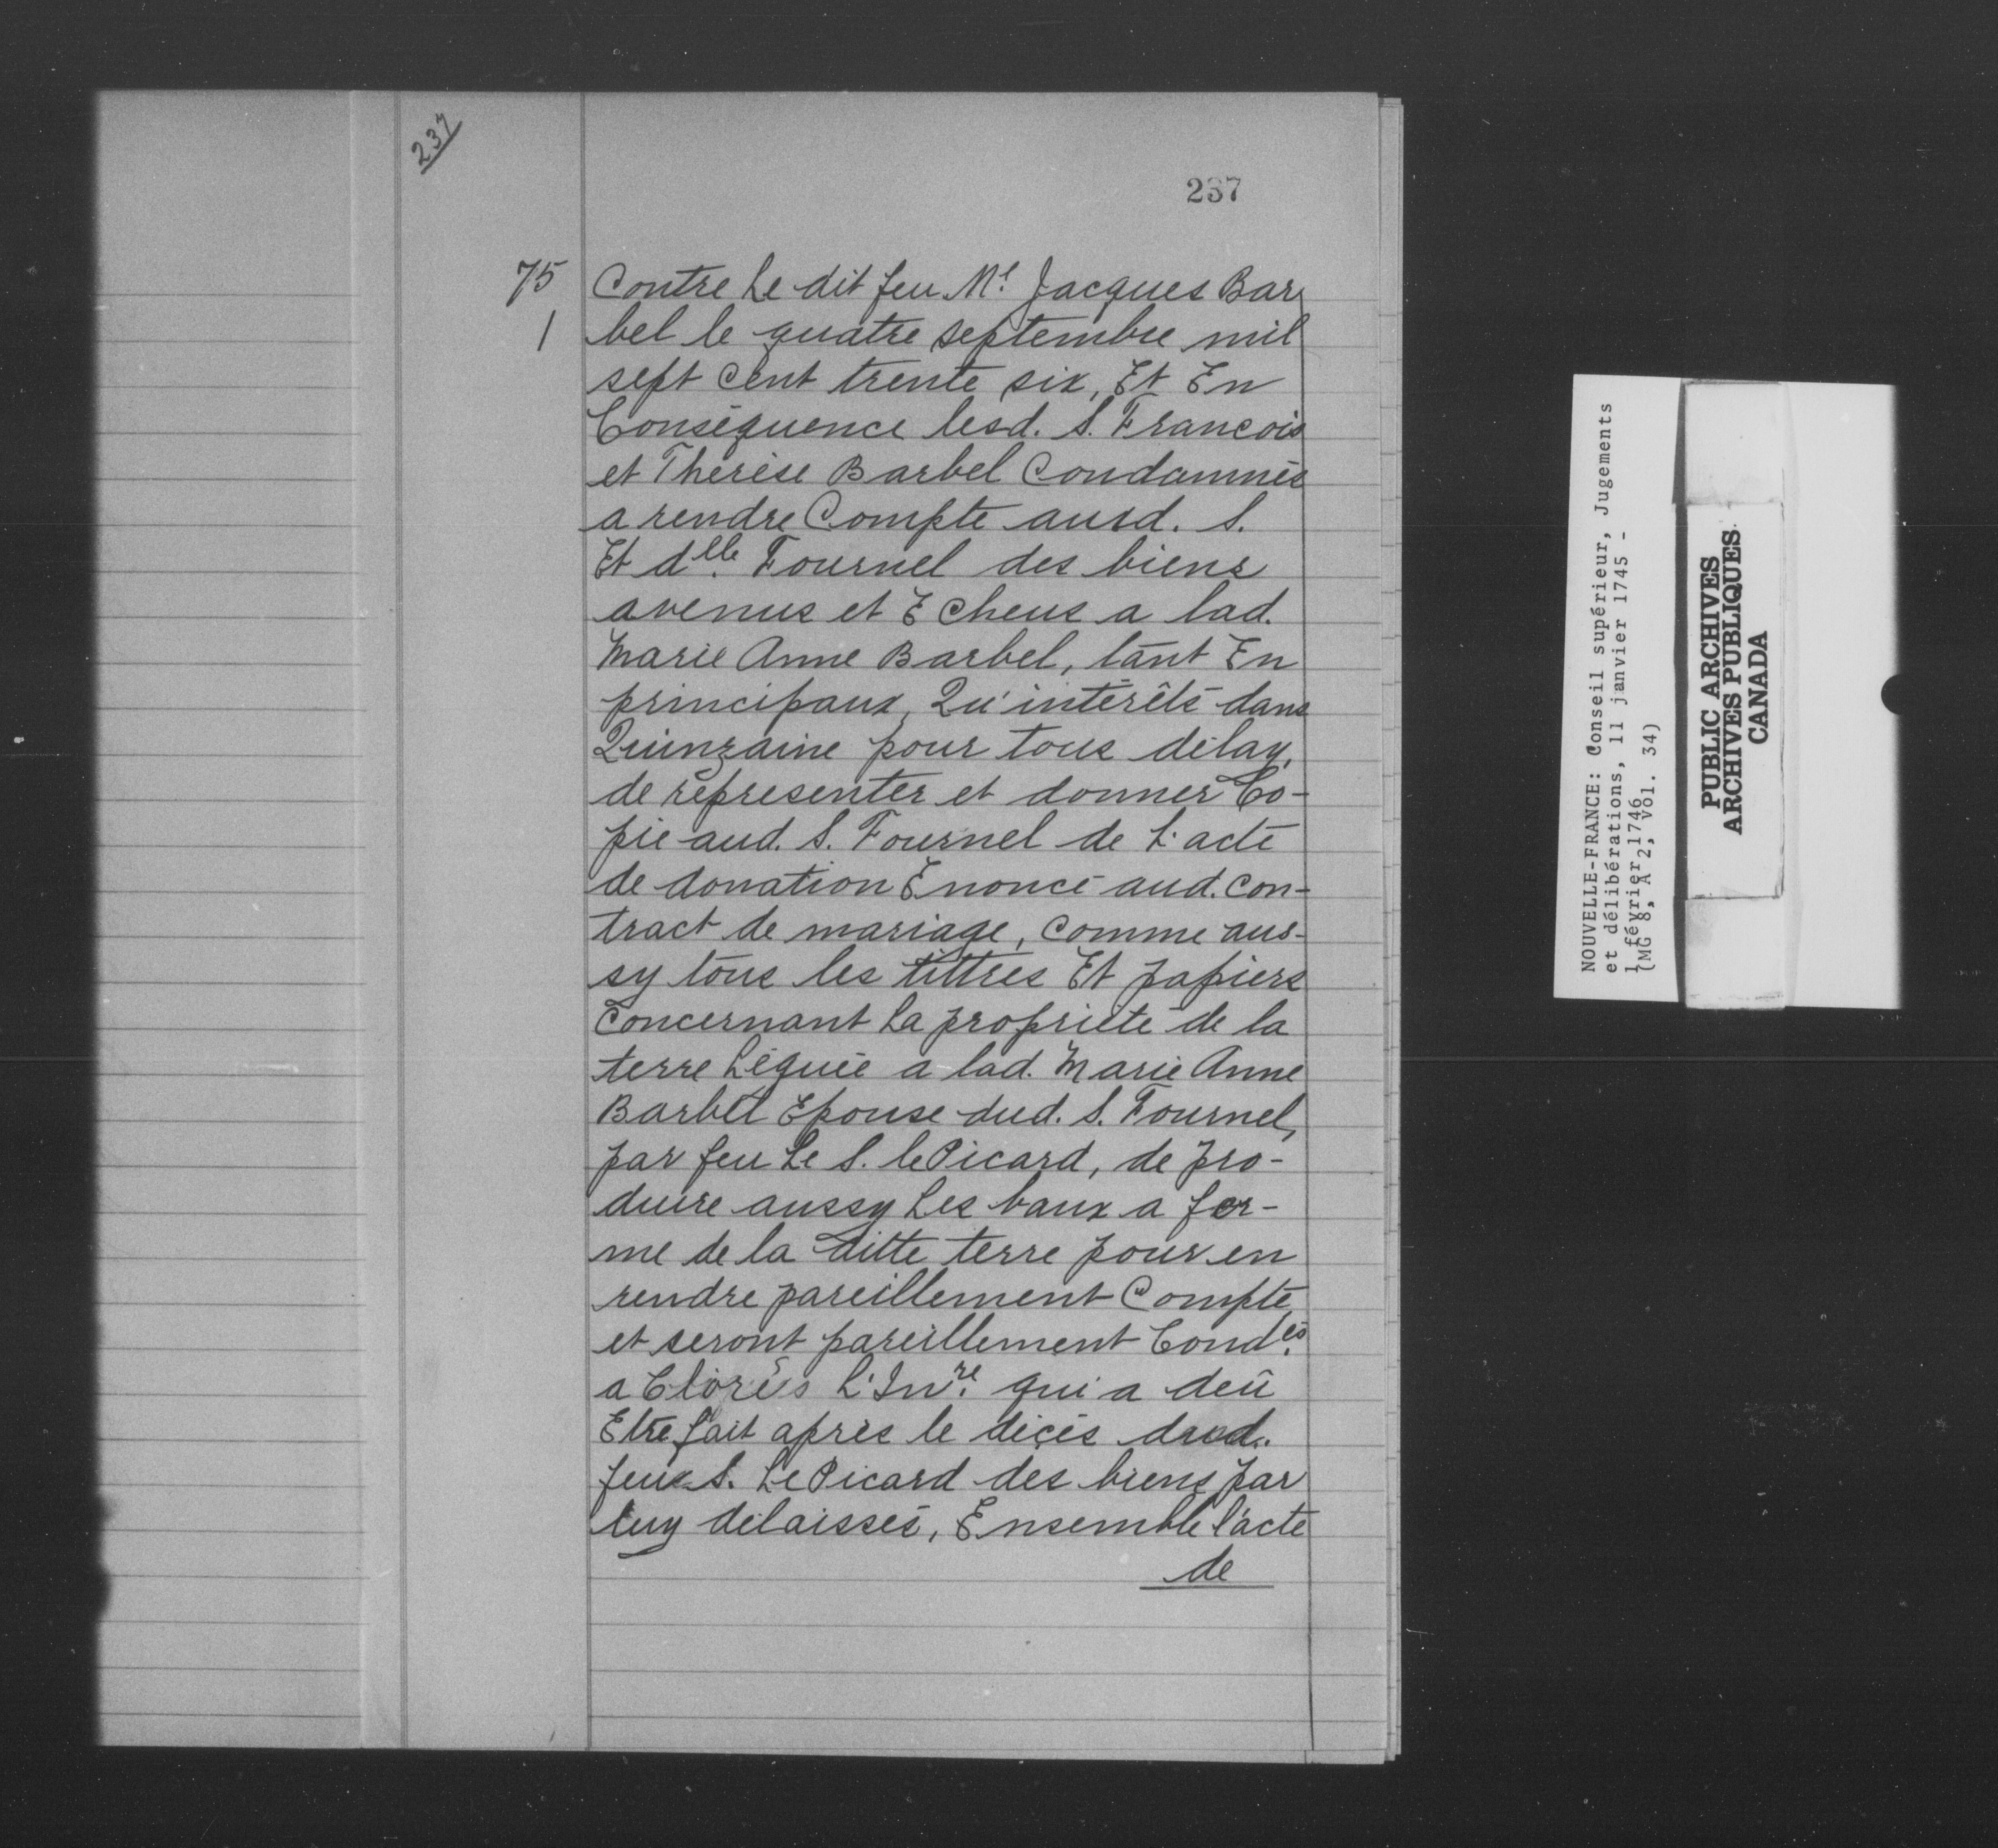 237
237
75
1
Contre Le dit feu Mᵉ Jacques Bar
bel le quatre septembre mil
sept cent trente six, Et En
Conséquence lesd. S. Francois
et Therèse Barbel Condamnés
a rendre Compte ausd. S.
Et dlle. Fournel des biens
avenus et Echeus a lad.
Marie Anne Barbel, tant En
principaux, Qu'intérêts dans
Quinzaine pour tous délay,
de représenter et donner Co-
pie aud. S. Fournel de L'acte
de donation Enoncé aud. con-
tract de mariage, comme aus-
sy tous les tittres Et papiers
concernant La propriété de la
terre Léguée a lad. Marie Anne
Barbel Epouse dud. S. Fournel,
par feu Le S. le Picard, de pro-
duire aussy Les baux a fer-
me de la ditte terre pour en
rendre pareillement Compte
et seront pareillement Condés.
a Clorés L'Inre. qui a deû
Etre fait après le décés dud.
feux S. Le Picard des biens par
luy délaissés, Ensemble l'acte
de
NOUVELLE-FRANCE: Conseil supérieur, Jugements
et délibérations, 11 janvier 1745 -
1 février 1746
(MG 8, A 2, vol. 34)
PUBLIC ARCHIVES
ARCHIVES PUBLIQUES
CANADA